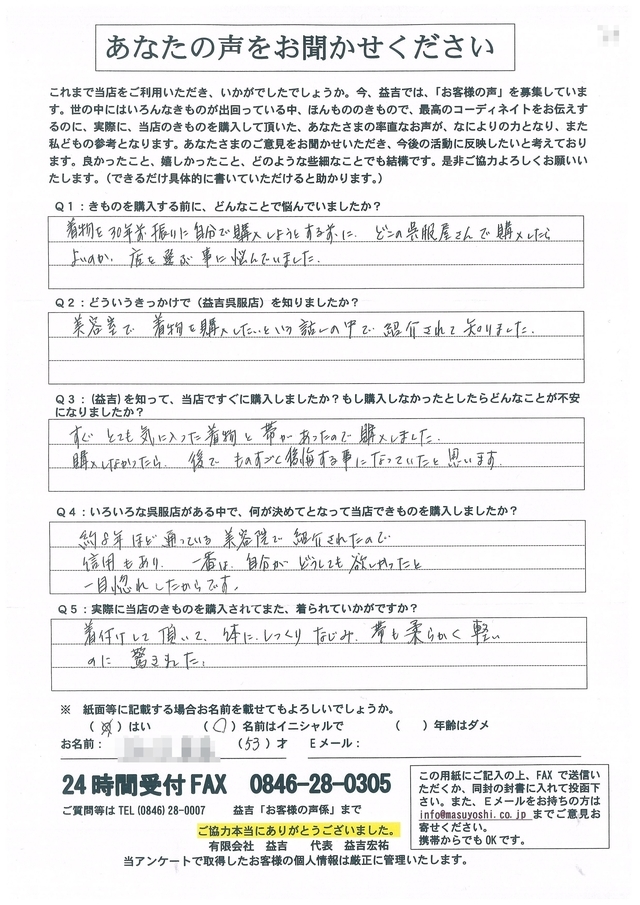 あなたの声をお聞かせください
これまで当店をご利用いただき、いかがでしたでしょうか。今、益吉では、「お客様の声」を募集していま
す。世の中にはいろんなきものが出回っている中、ほんもののきもので、最高のコーディネイトをお伝えす
るのに、実際に、当店のきものを購入して頂いた、あなたさまの率直なお声が、なによりの力となり、また
私どもの参考となります。あなたさまのご意見をお聞かせいただき、今後の活動に反映したいと考えており
ます。良かったこと、嬉しかったこと、どのような些細なことでも結構です。是非ご協力よろしくお願いい
たします。（できるだけ具体的に書いていただけると助かります。）
Q1：きものを購入する前に、どんなことで悩んでいましたか？
着物を30年お振りに自分で購入しようとする前に、どこの呉服屋さんで購入したら
よいのか、店を選ぶ事に悩んでいました。
Q2：どういうきっかけで（益吉呉服店）を知りましたか？
美容室で 着物を購入したいという話しの中で紹介されて知りました。
Q3：（益吉）を知って、当店ですぐに購入しましたか？もし購入しなかったとしたらどんなことが不安
になりましたか？
すぐ とても気に入った着物と帯があったので購入しました。
購入しなかったら、後で ものすごく後悔する事になっていたと思います。
Q4：いろいろな呉服店がある中で、何が決めてとなって当店できものを購入しましたか？
約8年ほど通っている美容院で紹介されたので
信用もあり、一番は、自分が どうしても欲しかったと
一目惚れしたからです。
Q5：実際に当店のきものを購入されてまた、着られていかがですか？
着付けして頂いて、体に、しっくりなじみ、帯も柔らかく軽い
のに 驚きました。
※ 紙面等に記載する場合お名前を載せてもよろしいでしょうか。
（ ）はい （○）名前はイニシャルで （ ）年齢はダメ
お名前： （53）才 Eメール：
24時間受付FAX 0846-28-0305
ご質問等は TEL (0846) 28-0007 益吉「お客様の声係」まで
ご協力本当にありがとうございました。
有限会社 益吉 代表 益吉宏祐
当アンケートで取得したお客様の個人情報は厳正に管理いたします。
この用紙にご記入の上、FAX で送信い
ただくか、同封の封書に入れて投函下
さい。また、Eメールをお持ちの方は
info@masuyoshi.co.jp までご意見お
寄せください。
携帯からでもOKです。